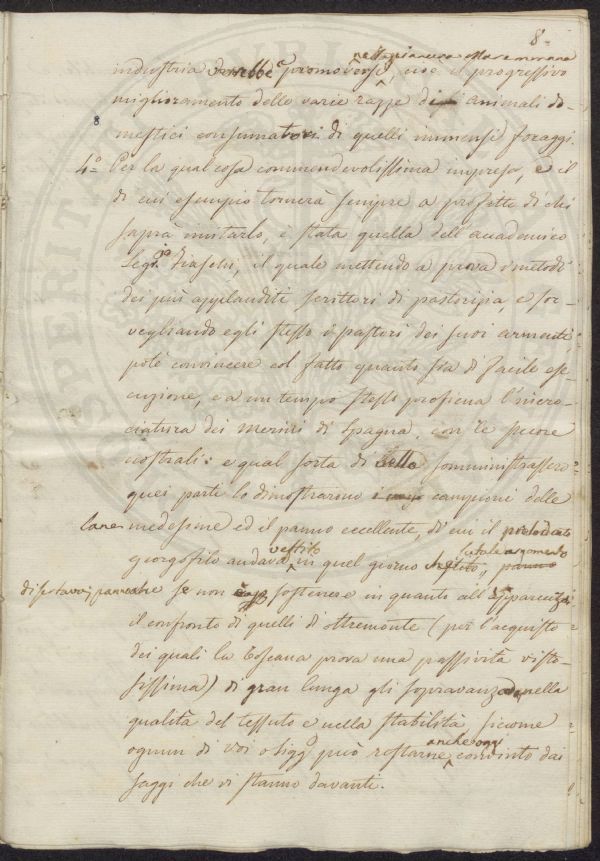 8.
nella pianura Maremmana
industria dovrebbe promoversi, cioè il progressivo
miglioramento delle varie razze di animali do-
8
mestici consumatori di quelli immensi foraggi.
4.° Per la qual cosa commendevolissima impresa, e il
di cui esempio tornerà sempre a profitto di chi
saprà imitarlo, è stata quella dell'accademico
Segr.io Fraschi, il quale mettendo a prova i metodi
dei più applauditi scrittori di pastorizia, e sor-
vegliando egli stesso i pastori dei suoi armenti,
potè convincere col fatto quanto sia di facile ese-
cuzione, e a un tempo stesso proficua l'incro-
ciatura dei Merini di Spagna, con le pecore
nostrali: e qual sorta di lana somministrassero
quei parti lo dimostrarono i campioni delle
lane medesime ed il panno eccellente, di cui il prelodato
vestito su tale argomento
georgofilo andava in quel giorno vestito, panno
dissertava; panno che se non può sostenere in quanto all'apparenza
il confronto di quelli di oltremonte (per l'acquisto
dei quali la Toscana prova una passività visto-
sissima) di gran lunga gli sopravanza nella
qualità del tessuto e nella stabilità, siccome
anche oggi
ognun di voi o Sigg.i può restarne convinto dai
saggi che vi stanno davanti.